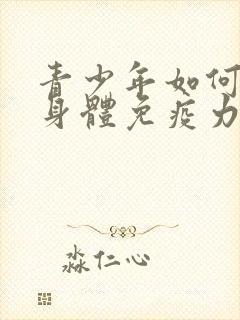 青少年如何
身體免疫力
淼仁心